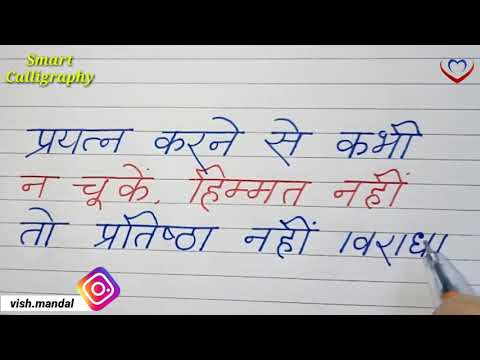 Smart
Calligraphy
प्रयत्न करने से कभी
न चूकें, हिम्मत नहीं
तो प्रतिष्ठा नहीं
vish.mandal